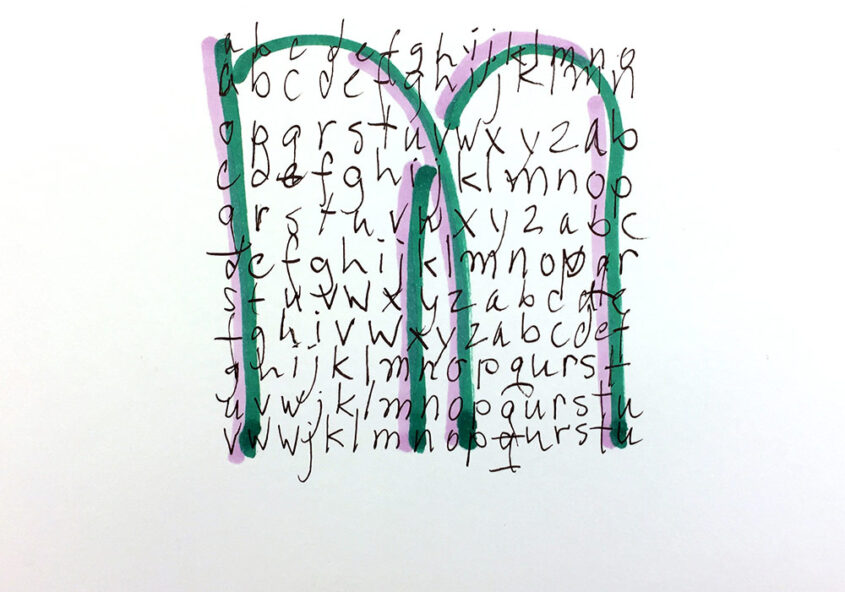 a b c d e f g h i j k l m n o
a b c d e f g h i j k l m n
o p q r s t u v w x y z a b
c d e f g h i j k l m n o p
q r s t u v w x y z a b c
d e f g h i j k l m n o p q r
s t u v w x y z a b c d f e
f g h i v w x y z a b c d e f
g h i j k l m n o p q u r s t
u v w j k l m n o p q u r s t u
v w w j k l m n o p q u r s t u